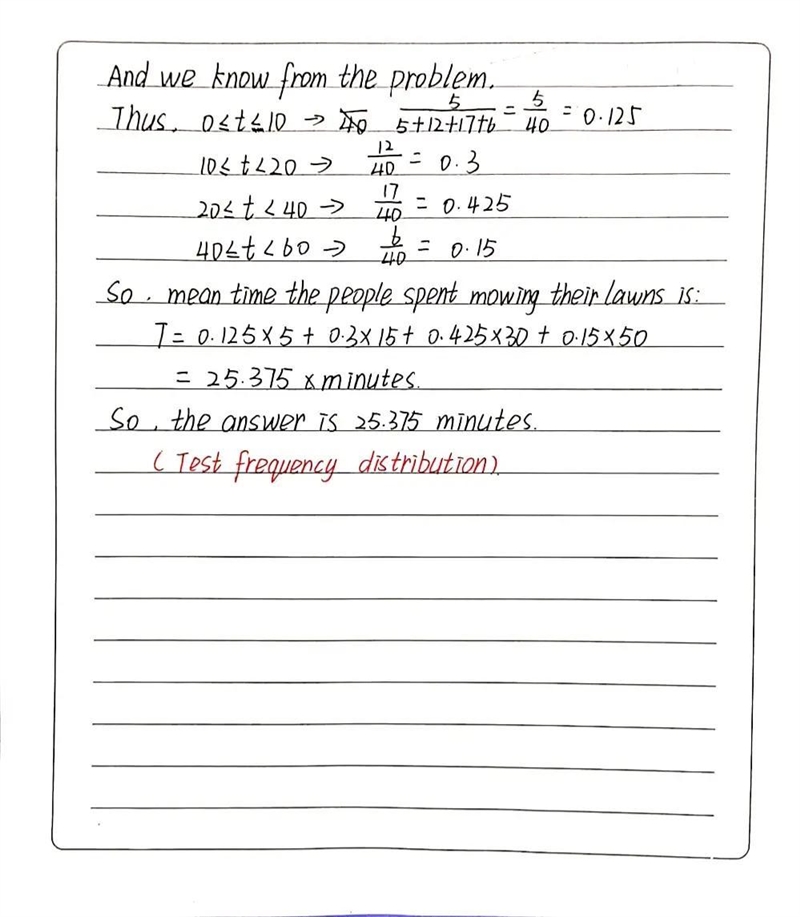 And we know from the problem.
Thus, 0≤t≤10 → 5/(5+12+17+6) = 5/40 = 0.125
10≤t<20 → 12/40 = 0.3
20≤t<40 → 17/40 = 0.425
40≤t<60 → 6/40 = 0.15
So, mean time the people spent mowing their lawns is:
T = 0.125×5 + 0.3×15 + 0.425×30 + 0.15×50
= 25.375 x minutes.
So, the answer is 25.375 minutes.
(Test frequency distribution).